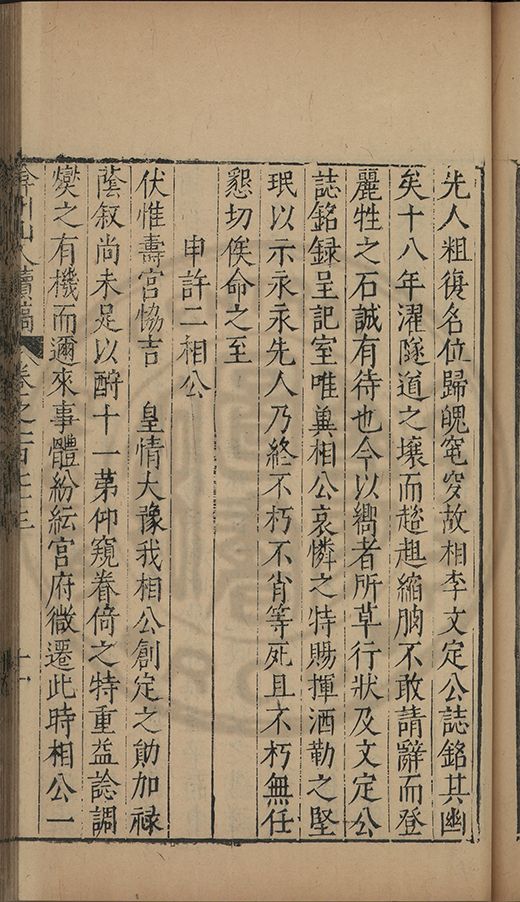 先人粗復名位歸魄窀穸故相李文定公誌銘其幽
矣十八年濯隧道之壤而趑趄縮朒不敢請辭而登
麗牲之石誠有待也今以嚮者所草行狀及文定公
誌銘録呈記室唯冀相公哀憐之特賜揮洒勒之堅
珉以示永永先人乃終不朽不肖等死且不朽無任
懇切俟命之至
申許二相公
伏惟壽宮恊吉　皇情大豫我相公創定之勛加祿
蔭叙尚未足以酧十一苐仰窺眷倚之特重益諗調
爕之有機而邇來事體紛紜宮府微遷此時相公一
弇州山人續稿　卷之一百七十三　十一